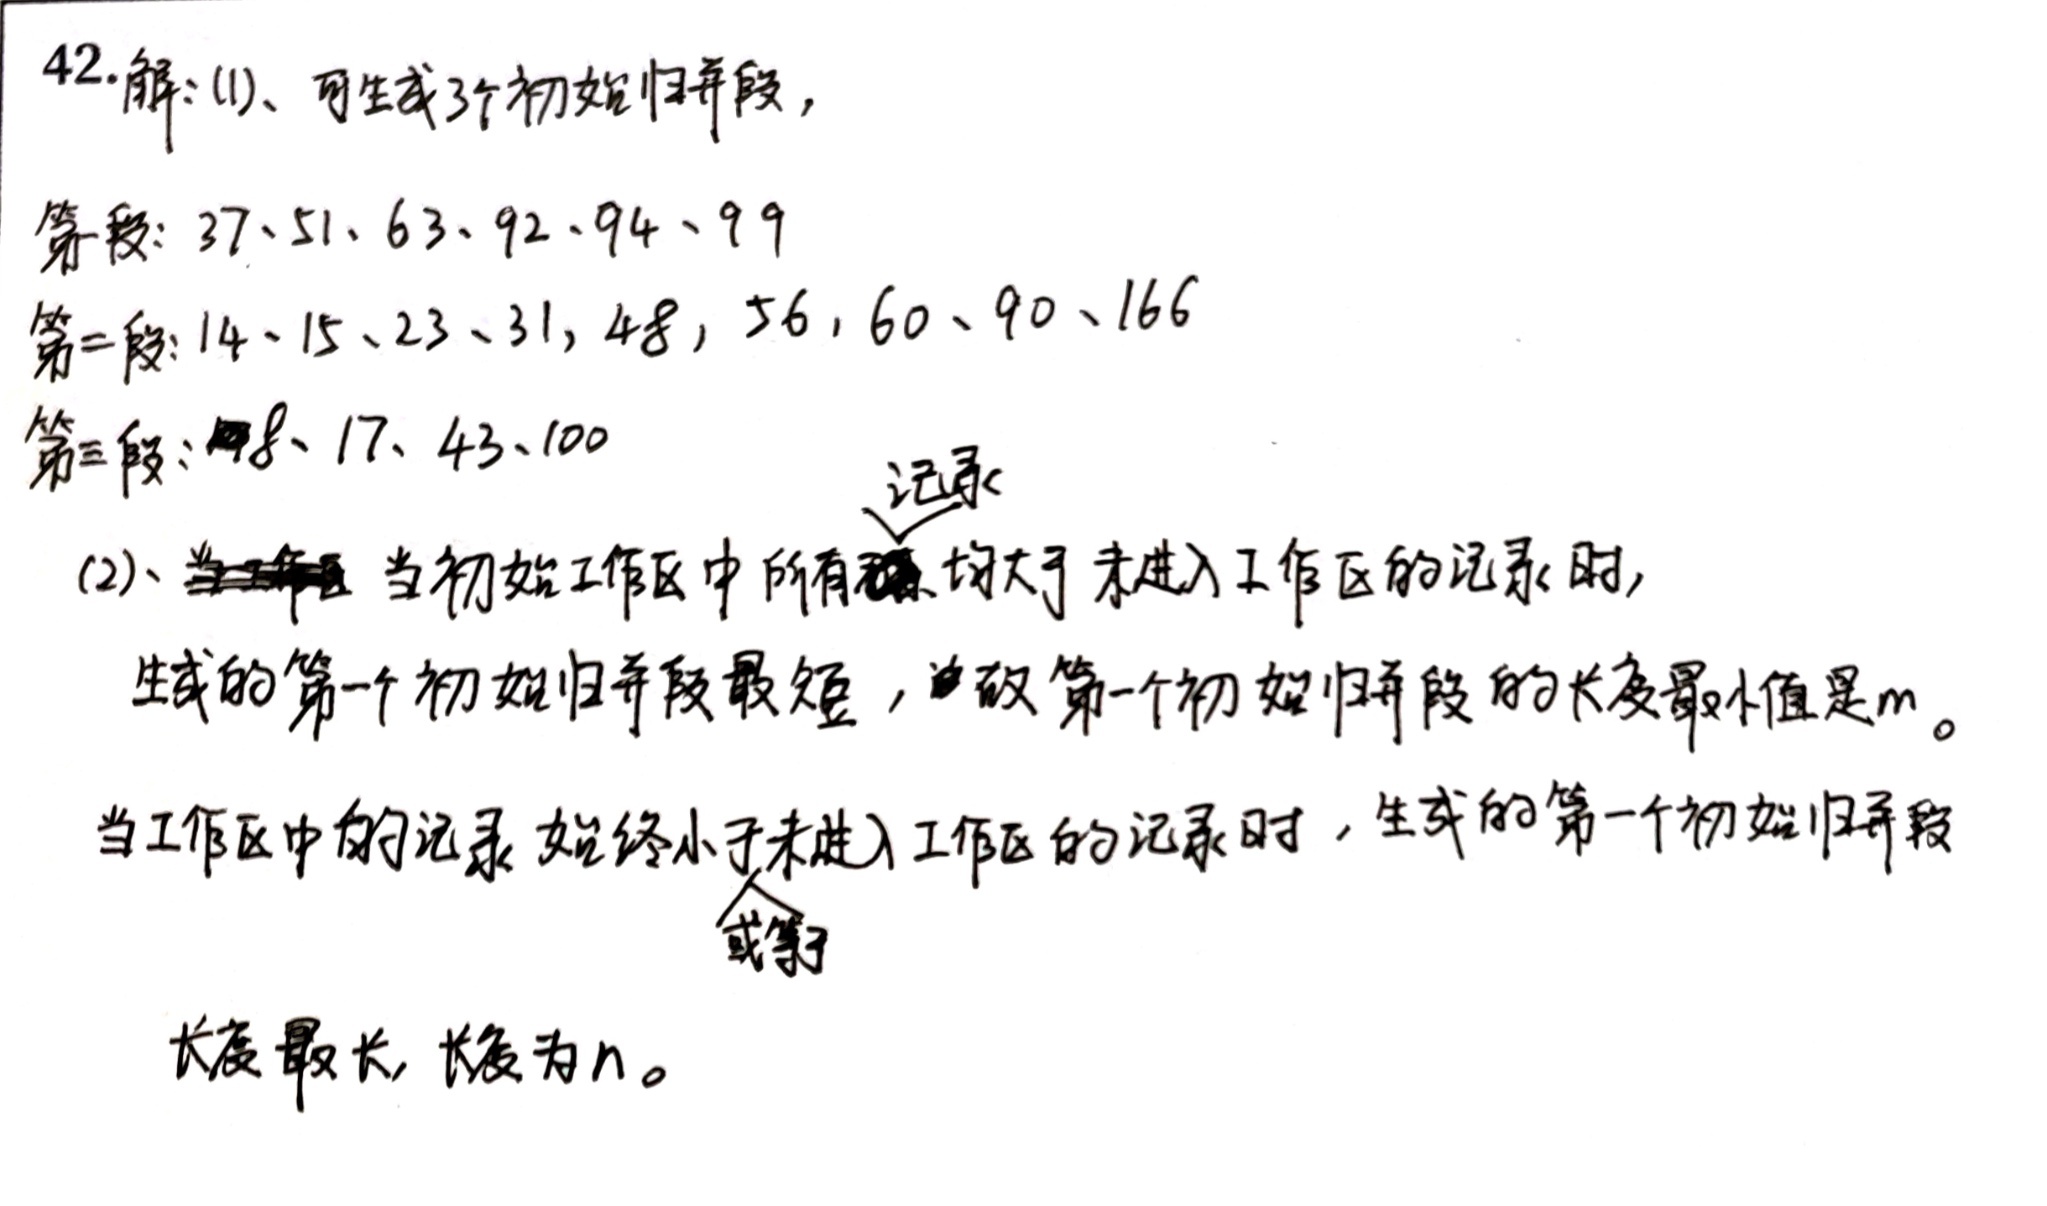 42.解:(1)、可生成3个初始归并段,
第一段: 37、51、63、92、94、99
第二段: 14、15、23、31, 48, 56, 60、90、166
第三段: 8、17、43、100
记录
(2)、当初始工作区中所有均大于未进入工作区的记录时,
生成的第一个初始归并段最短,故第一个初始归并段的长度最小值是m。
当工作区中的记录始终小于未进入工作区的记录时,生成的第一个初始归并段
或等于
长度最长,长度为n。